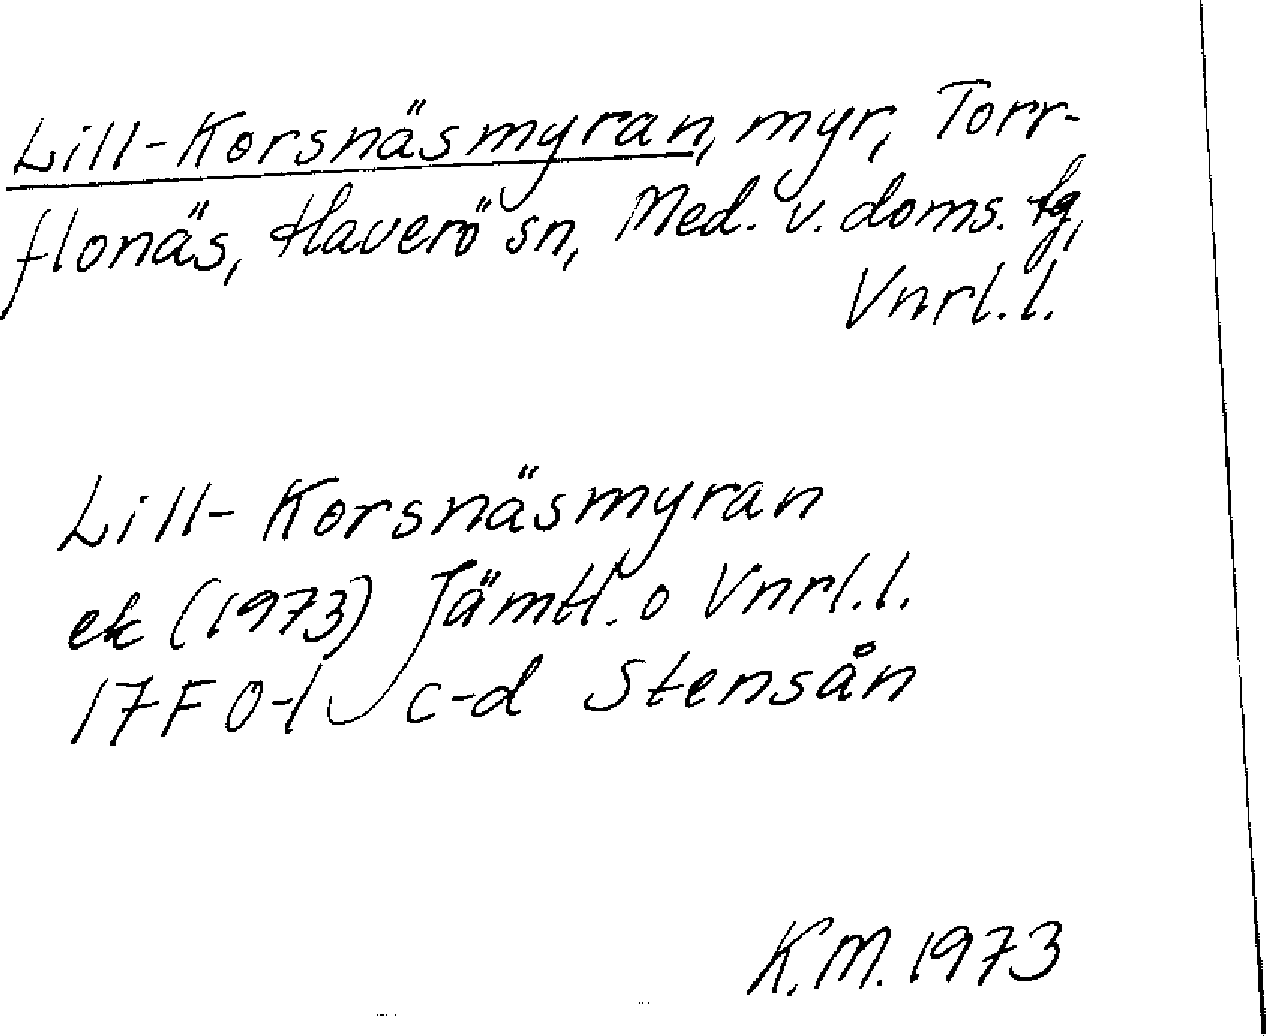 Lill-Korsnäsmyran, myr, Torr-
flonäs, Haverö sn, Med. v. doms. tg,
Vnrl.l.
Lill-Korsnäsmyran
ek (1973) Jämtl. o Vnrl.l.
17F 0-1 c-d Stensån
K.M. 1973